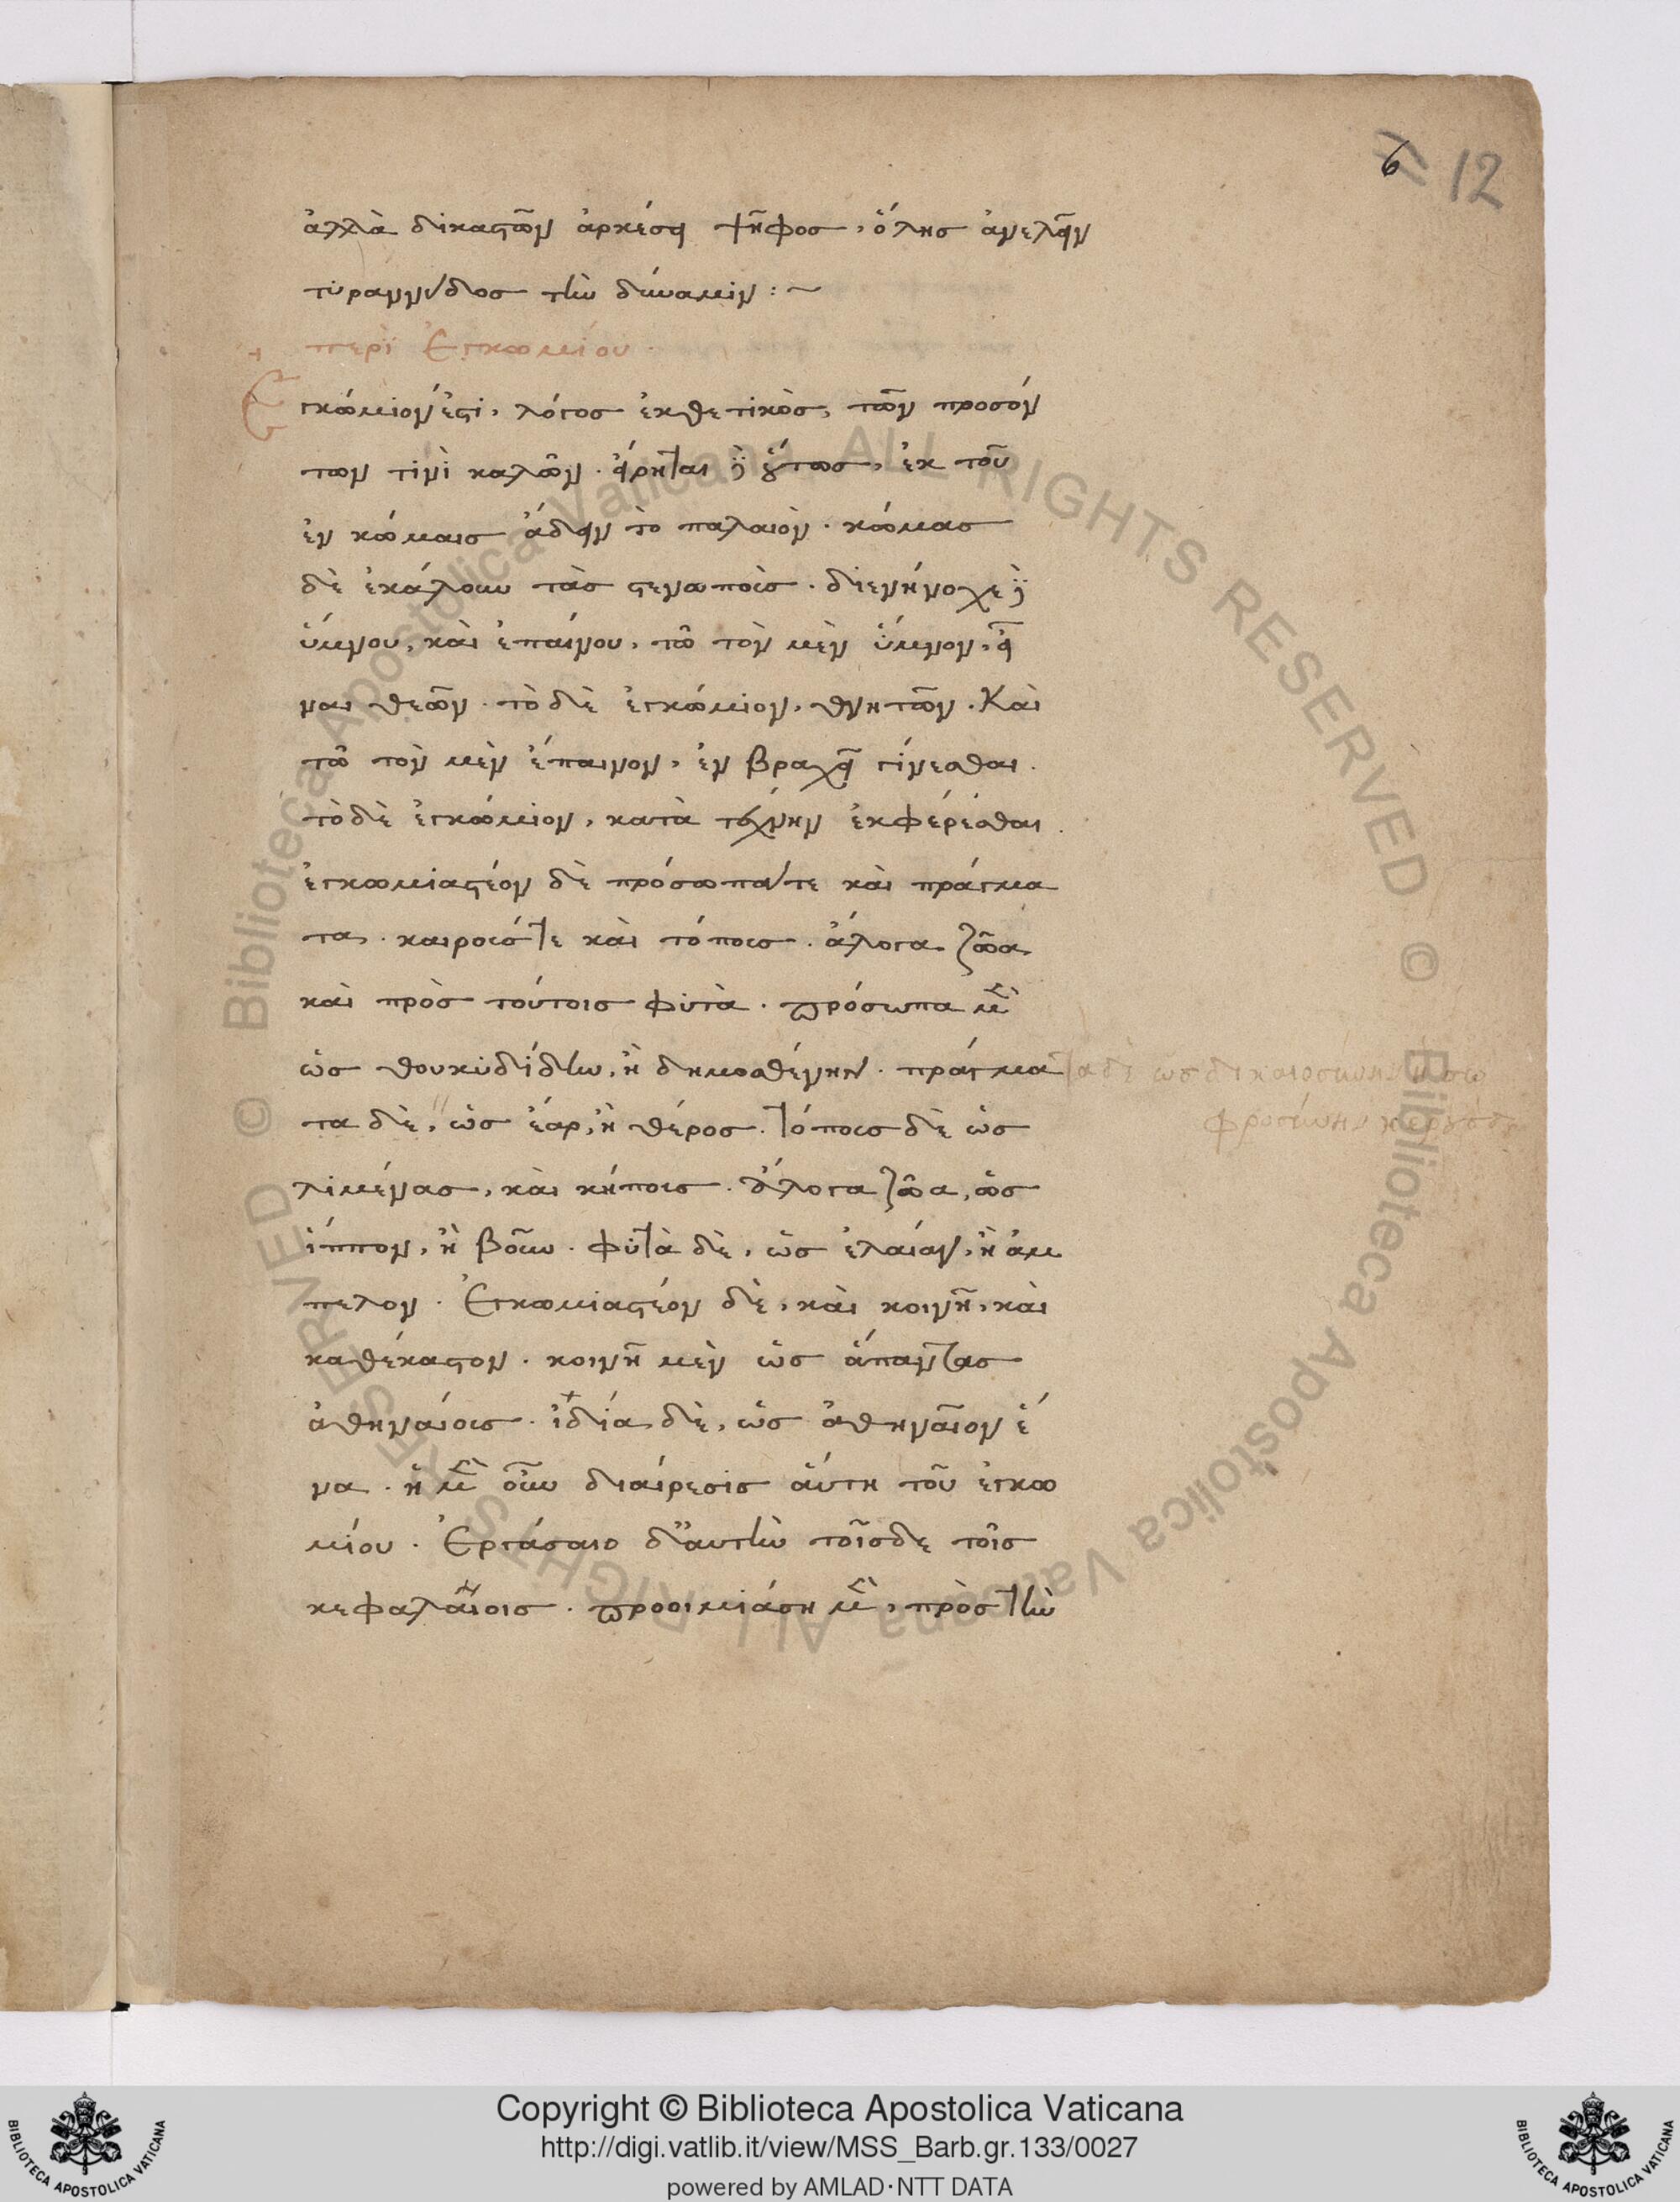 6 12
ἀλλὰ δικαστῶν ἀρκέσει ψῆφος, ὅλης ἀνελεῖν
τυραννίδος τὴν δύναμιν :~
περὶ Ἐγκωμίου.
Ἐγκώμιόν ἐστι, λόγος ἐκθετικὸς, τῶν προσόν
των τινὶ καλῶν. εἴρηται δὲ οὕτως, ἐκ τοῦ
ἐν κώμαις ἄδειν τὸ παλαιὸν. κώμας
δὲ ἐκάλουν τὰς στενωποὺς. διενήνοχε δὲ
ὕμνου, καὶ ἐπαίνου, τῶ τὸν μὲν ὕμνον, εἶ
ναι θεῶν. τὸ δὲ ἐγκώμιον, θνητῶν. Καὶ
τῶ τὸν μὲν ἔπαινον, ἐν βραχεῖ γίνεσθαι.
τὸ δὲ ἐγκώμιον, κατὰ τέχνην ἐκφέρεσθαι.
ἐγκωμιαστέον δὲ πρόσωπά τε καὶ πράγμα
τα. καιρούς τε καὶ τόπους. ἄλογα ζῶα
καὶ πρὸς τούτοις φυτὰ. πρόσωπα μὲν
ὡς θουκυδίδην, ἢ δημοσθένην. πράγμα
τα δὲ, ὡς ἔαρ, ἢ θέρος. τόπους δὲ ὡς
λιμένας, καὶ κήπους. ἄλογα ζῶα, ὡς
ἵππον, ἢ βοῦν. φυτὰ δὲ, ὡς ἐλαίαν, ἢ ἄμ
πελον. Ἐγκωμιαστέον δὲ, καὶ κοινῆ, καὶ
καθέκαστον. κοινῆ μὲν ὡς ἅπαντας
ἀθηναίους. ἰδία δὲ, ὡς ἀθηναῖον ἕ
να. ἡ μὲν οὖν διαίρεσις αὕτη τοῦ ἐγκω
μίου. Ἐργάσαιο δ' αὐτὴν τοῖσδε τοῖς
κεφαλαίοις. προοιμιάση μὲν, πρὸς τὴν
τα δὲ ὡς δικαιοσύνην ἢ σω
φροσύνην
Copyright © Biblioteca Apostolica Vaticana
http://digi.vatlib.it/view/MSS_Barb.gr.133/0027
powered by AMLAD·NTT DATA
BIBLIOTECA APOSTOLICA VATICANA
BIBLIOTECA APOSTOLICA VATICANA
© Biblioteca Apostolica Vaticana ALL RIGHTS RESERVED © Biblioteca Apostolica Vaticana ALL RIGHTS RESERVED